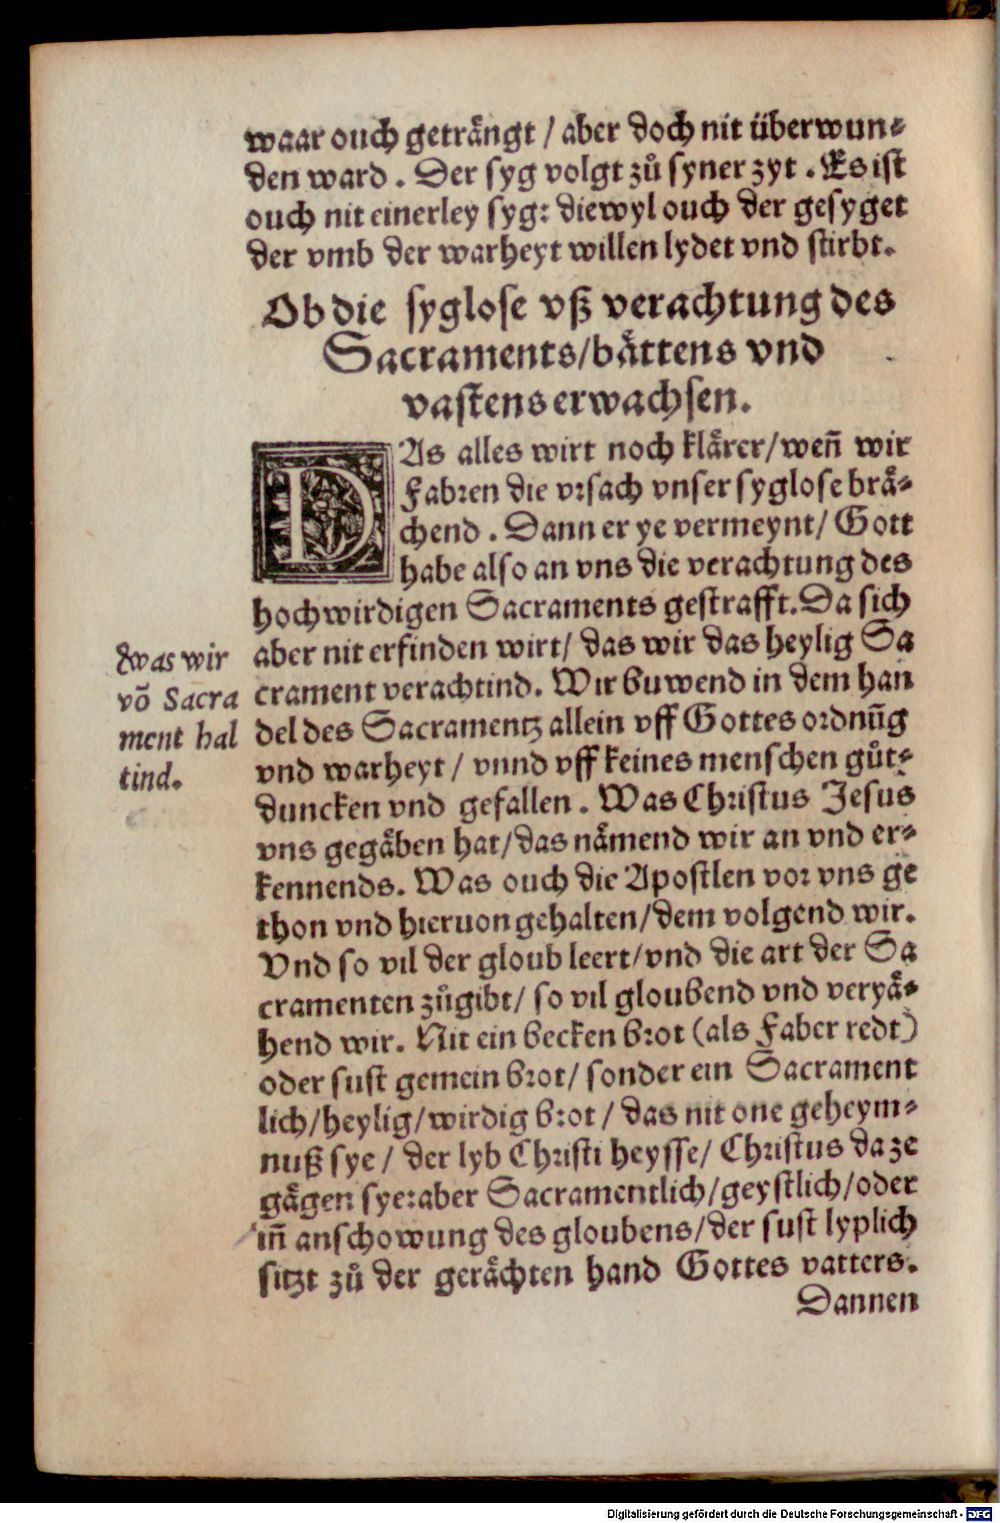 waar ouch geträngt / aber doch nit überwun⸗
den ward . Der syg volgt zuͦ syner zyt . Es ist
ouch nit einerley syg: diewyl ouch der gesyget
der vmb der warheyt willen lydet vnd stirbt.
Ob die syglose vß verachtung des
Sacraments/bättens vnd
vastens erwachsen.
DAs alles wirt noch klärer/weñ wir
Fabren die vrsach vnser syglose brä⸗
chend . Dann er ye vermeynt/ Gott
habe also an vns die verachtung des
hochwirdigen Sacraments gestrafft. Da sich
aber nit erfinden wirt/ das wir das heylig Sa
crament verachtind. Wir buwend in dem han
del des Sacramentz allein vff Gottes ordnũg
vnd warheyt / vnnd vff keines menschen guͦt⸗
duncken vnd gefallen . Was Christus Jesus
vns gegäben hat/das nämend wir an vnd er⸗
kennends. Was ouch die Apostlen vor vns ge
thon vnd hieruon gehalten/dem volgend wir.
Vnd so vil der gloub leert/vnd die art der Sa
cramenten zuͦgibt/ so vil gloubend vnd veryä⸗
hend wir. Nit ein becken brot (als Faber redt)
oder sust gemein brot/ sonder ein Sacrament
lich/heylig/wirdig brot / das nit one geheym⸗
nuß sye / der lyb Christi heysse/ Christus da ze
gägen sye:aber Sacramentlich/geystlich/oder
iñ anschowung des gloubens/der sust lyplich
sitzt zuͦ der gerächten hand Gottes vatters.
Dannen
was wir
võ Sacra
ment hal
tind.
Digitalisierung gefördert durch die Deutsche Forschungsgemeinschaft - DFG